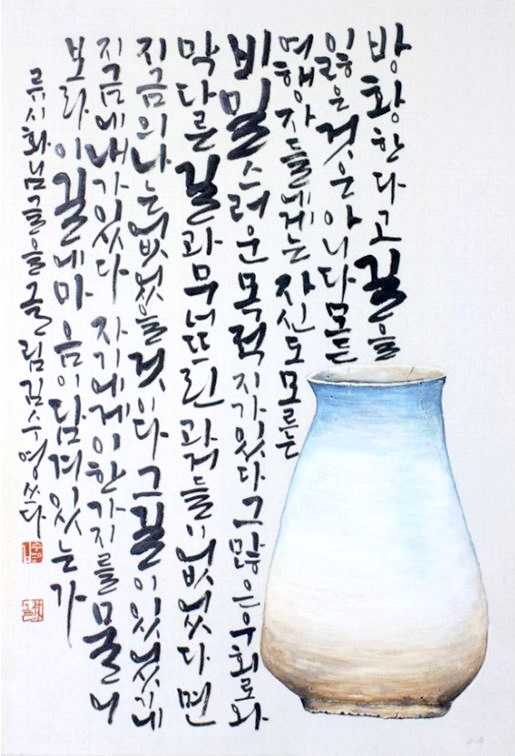 방황한다고 길을
잃은 것은 아니다 모든
여행자들에게는 자신도 모르는
비밀스러운 목적지가 있다 그 많은 우회로와
막다른 길과 무너뜨린 과거들이 없었다면
지금의 나는 없었을 것이다 그 길이 있었기에
지금에 내가 있다 자기에게 이 한 가지를 물어
보라 이 길에 마음이 담겨 있는가
류시화님 글을 글림 김수영 쓰다